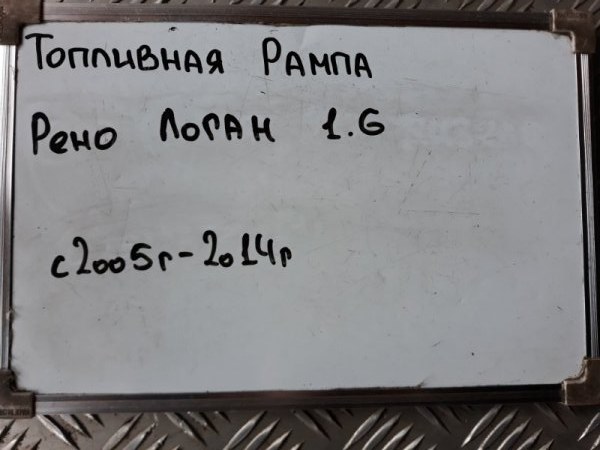 Топливная Рампа
Рено Логан 1.6
с2005г-2014г